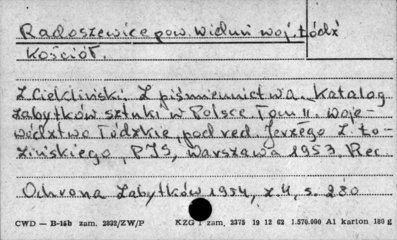 Radoszewice pow. wieluń woj. Łódź
Kościół.
Z. Ciekliński. Z piśmiennictwa. Katalog
zabytków sztuki w Polsce Tom II. Woje-
wództwo Łódzkie, pod red. Jerzego Z. Ło-
zińskiego, PIS, Warszawa 1953, Rec
Ochrona Zabytków 1954, z. 4, s. 280
CWD — B-15b zam. 2832/ZW/P KZG 1 zam. 3375 19 12 62 1.570.000 A1 karton 180 g